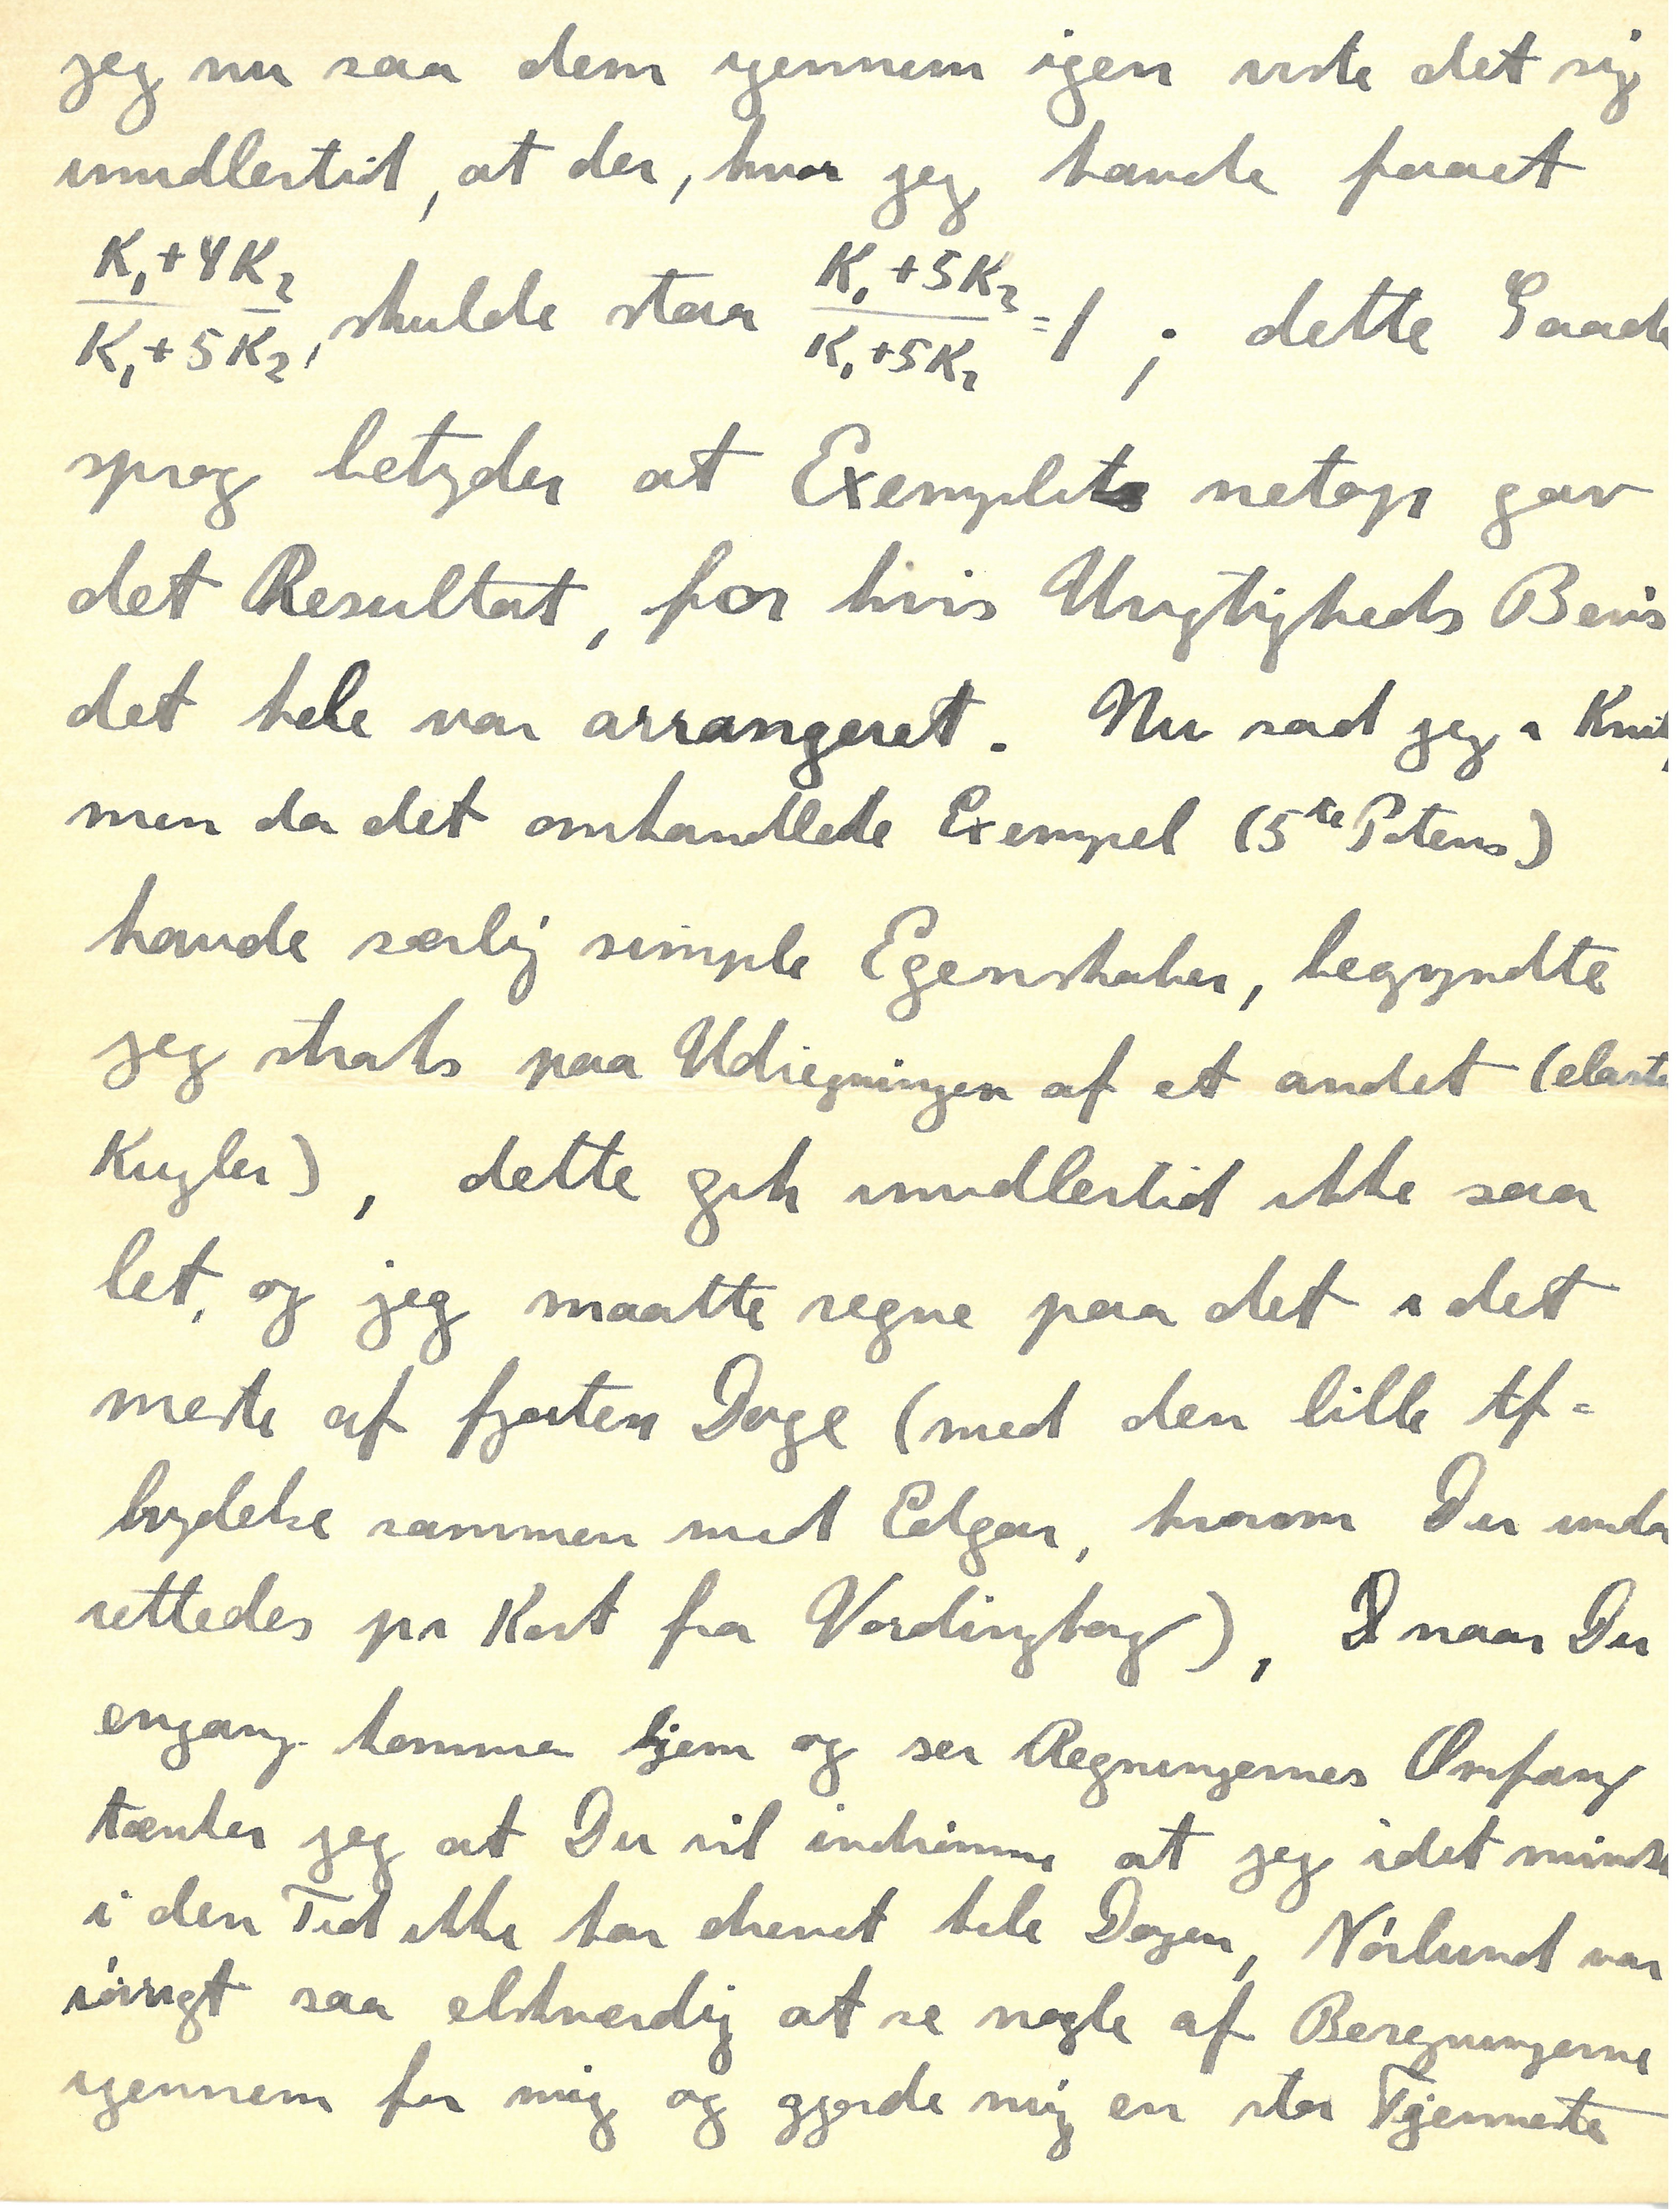 jeg nu saa dem igennem igen viste det sig
imidlertid, at der, hvor jeg havde faaet
(K₁+4K₂)/(K₁+5K₂), skulde staa (K₁+5K₂)/(K₁+5K₂)=1 ; dette Gaade
sprog betyder at Exemplet netop gav
det Resultat, for hvis Urigtigheds Bevis
det hele var arrangeret. Nu sad jeg i Knib,
men da det omhandlede Exempel (5te Potens)
havde særlig simple Egenskaber, begyndte
jeg straks paa Udregningen af et andet (elast
Kugler), dette gik imidlertid ikke saa
let, og jeg maatte regne paa det i det
meste af fjorten Dage (med den lille Af=
brydelse sammen med Edgar, hvorom Du under
rettedes pr Kort fra Vordingborg), naar Du
engang kommer hjem og ser Regningernes Omfang
tænker jeg at Du vil indrømme at jeg idet mindste
i den Tid ikke har drevet hele Dagen, Nørlund var
iøvrigt saa elskværdig at se nogle af Beregningerne
igennem for mig og gjorde mig en stor Tjenneste